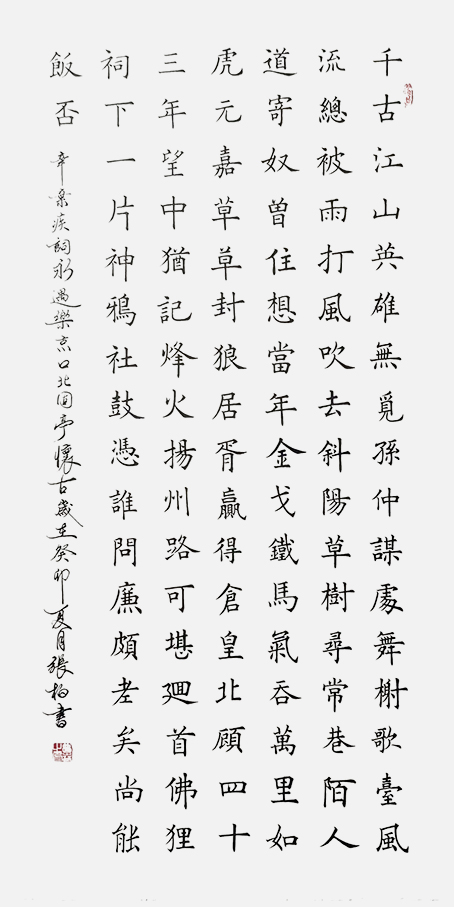 千古江山英雄無覓孫仲謀處舞榭歌臺風
流總被雨打風吹去斜陽草樹尋常巷陌人
道寄奴曾住想當年金戈鐵馬氣吞萬里如
虎元嘉草草封狼居胥贏得倉皇北顧四十
三年望中猶記烽火揚州路可堪廻首佛狸
祠下一片神鴉社鼓憑誰問廉頗老矣尚能
飯否 辛棄疾詞永遇樂京口北固亭懷古歲在癸卯夏月張柏書